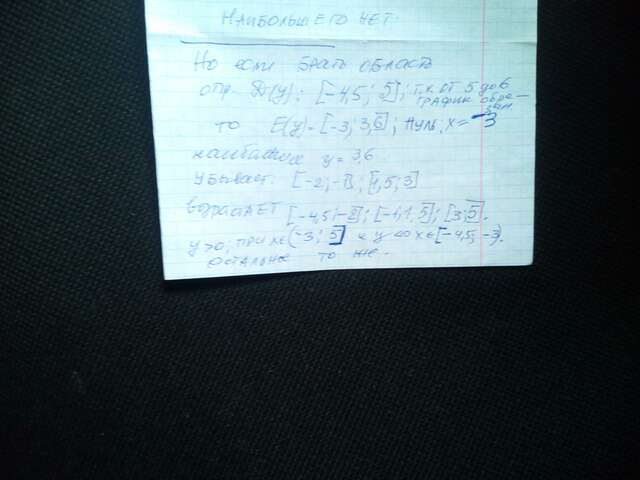 НАИБОЛЬШЕГО НЕТ.
Но если брать область
опр. D(y): [-4,5; 5]; т.к от 5 до 6
ГРАФИК обре-
зан.
то E(y)-[-3; 3,6]; Нуль, x = -3
y = 3,6
убывает: [-2; -1]; [1,5; 3]
возрастАЕТ [-4,5; -2]; [-1; 1,5]; [3; 5].
y>0; при x∈(-3; 5] и y<0 x∈[-4,5; -3).
Остальное то же.